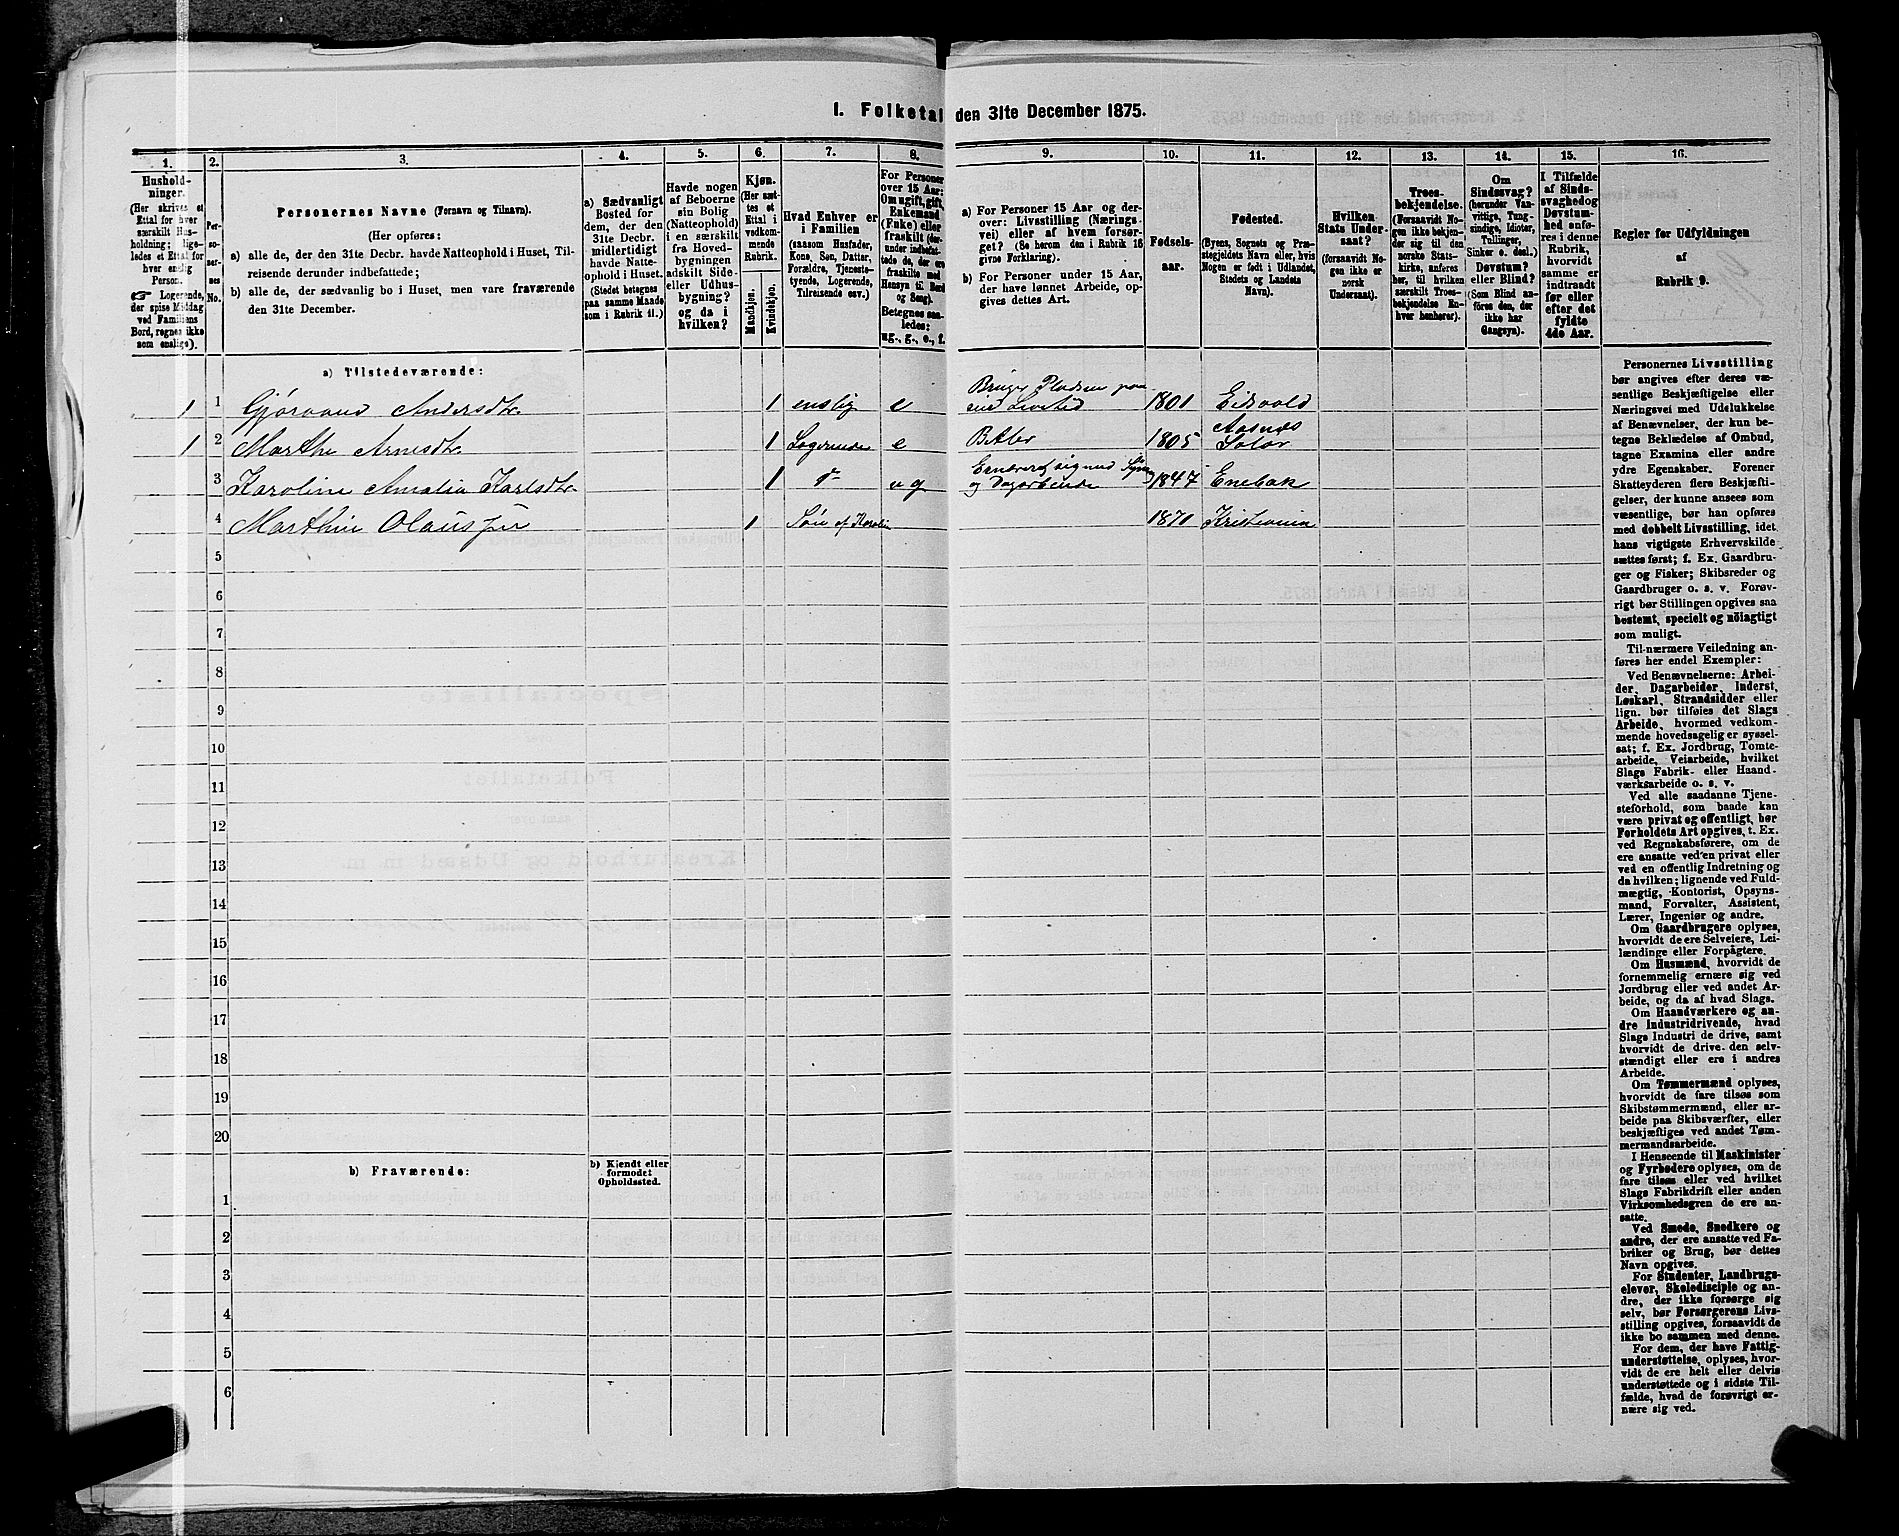 I. Folketal den 31te December 1875.
1. 2. 3. 4. 5. 6. 7. 8. 9. 10. 11. 12. 13. 14. 15. 16.
Husholdninger.
(Her skrives et
Ettal for hver
særskilt Husholdning;
ligeledes et Ettal for
hver enslig
Person.
☞ Logerende,
der spise Middag
ved Familiens
Bord, regnes ikke
som enslige).
Personernes
No.
Personernes Navne (Fornavn og Tilnavn).
(Her opføres:
a) alle de, der den 31te Decbr. havde Natteophold i Huset, Tilreisende
derunder indbefattede;
b) alle de, der sædvanlig bo i Huset, men vare fraværende
den 31te December.
a) Sædvanligt
Bosted for
dem, der den
31te Decbr.
midlertidigt
havde Natteophold
i Huset.
(Stedet betegnes
paa samme Maade
som i Rubrik 11.)
Havde nogen
af Beboerne
sin Bolig
(Natteophold)
i en særskilt
fra Hovedbygningen
adskilt Side-
eller Udhusbygning?
og da i
hvilken?
Kjøn.
(Her sættes
et
Ettal i
vedkommende
Rubrik.
Mandkjøn.
Kvindekjøn.
Hvad Enhver er
i Familien
(saasom Husfader,
Kone, Søn, Datter,
Forældre, Tjenestetyende,
Logerende,
Tilreisende osv.)
For Personer
over 15 Aar:
Om ugift, gift,
Enkemand
(Enke) eller
fraskilt (derunder
indbefattede
de, der ere
fraskilte med
Hensyn til Bord
og Seng).
Betegnes saaledes:
ug., g., e., f.
a) For Personer 15 Aar og derover:
Livsstilling (Næringsvei)
eller af hvem forsørget?
(Se herom den i Rubrik 16
givne Forklaring).
b) For Personer under 15 Aar,
der have lønnet Arbeide, opgives
dettes Art.
Fødselsaar.
Fødested.
(Byens, Sognets og Præstegjeldets
Navn eller, hvis
Nogen er født i Udlandet,
Stedets og Landets
Navn).
Hvilken
Stats Undersaat?
(forsaavidt Nogen
ikke er
norsk
Undersaat).
Troesbekjendelse.
(Forsaavidt Nogen
ikke bekjender
sig til den
norske Statskirke,
anføres
her, til hvilken
særskilt Troesbekjendelse
Enhver
henhører).
Om
Sindssvag?
(herunder Vanvittige,
Tungsindige,
Idioter,
Tullinger,
Sinker o. desl.).
Døvstum?
eller Blind?
(Som Blind anføres
den, der
ikke har
Gangsyn).
I Tilfælde
af Sindssvaghed
og
Døvstumhed
anføres
i denne
Rubrik,
hvorvidt
samme er
indtraadt
før eller
efter det
fyldte
4de Aar.
Regler før Udfyldningen
af
Rubrik 9.
a) Tilstedeværende:
Brugr Pladsen paa
1 1 Gjøraand Andersdtr. 1 enslig e sin Livstid 1801 Eidsvold
Aasnæs
1 2 Marthe Arnesdtr. 1 Logerende e 1805 Solør
Ernærer sig ved Syn
3 Karoline Amalia Karlsdtr. 1 do ug og Dagarbeide 1847 Enebak
4 Marthin Olaussen 1 Søn af Karolin 1871 Kristiania
5
6
7
8
9
10
11
12
13
14
15
16
17
18
19
20
b) Fraværende:
b) Kjendt eller
formodet
Opholdssted.
1
2
3
4
5
6
Personernes Livsstilling
bør angives efter deres væsentlige
Beskjæftigelse eller
Næringsvei med Udelukkelse
af Benævnelser, der kun betegne
Beklædelse af Ombud,
tagne Examina eller andre
ydre Egenskaber. Forener
Skatteyderen flere Beskjæftigelser,
der kunne ansees som
væsentlige, bør han opføres
med dobbelt Livsstilling, idet
hans vigtigste Erhvervskilde
sættes først; f. Ex. Gaardbruger
og Fisker; Skibsreder og
Gaardbruger o. s. v. Forøvrigt
bør Stillingen opgives saa
bestemt, specielt og nöiagtigt
som muligt.
Til nærmere Veiledning anføres
her endel Exempler:
Ved Benævnelserne: Arbeider,
Dagarbeider, Inderst,
Løskarl, Strandsidder eller
lign. bør tilføies det Slags
Arbeide, hvormed vedkommende
hovedsagelig er sysselsat;
f. Ex. Jordbrug, Tomtearbeide,
Veiarbeide, hvilket
Slags Fabrik- eller Haandværksarbeide
o. s. v.
Ved alle saadanne Tjenesteforhold,
som baade kan
være privat og offentligt, bør
Forholdets Art opgives, t. Ex.
ved Regnskabsførere, om de
ere ansatte ved en privat eller
ved en offentlig Indretning og
da hvilken; lignende ved Fuldmægtig,
Kontorist, Opsynsmand,
Forvalter, Assistent,
Lærer, Ingeniør og andre.
Om Gaardbrugere oplyses,
hvorvidt de ere Selveiere, Leilændinge
eller Forpagtere.
Om Husmænd, hvorvidt de
fornemmelig ernære sig ved
Jordbrug eller ved andet Arbeide,
og da af hvad Slags.
Om Haandværkere og andre
Industridrivende, hvad
Slags Industri de drive, samt
hvorvidt de drive den selvstændigt
eller ere i andres
Arbeide.
Om Tømmermænd oplyses,
hvorvidt de fare tilsøs som
Skibstømmermænd, eller arbeide
paa Skibsværfter, eller
beskjæftiges ved andet Tømmermandsarbeide.
I Henseende til Maskinister
og Fyrbødere oplyses, om de
fare tilsøs eller ved hvilket
Slags Fabrikdrift eller anden
Virksomhedsgren de ere ansatte.
Ved Smede, Snedkere og
andre, der ere ansatte ved Fabriker
og Brug, bør dettes
Navn opgives.
For Studenter, Landbrugselever,
Skoledisciple og andre,
der ikke forsørge sig
selv, bør Forsørgerens Livsstilling
opgives, forsaavidt de
ikke bo sammen med denne.
For dem, der have Fattigunderstøttelse,
oplyses, hvorvidt
de ere helt eller delvis
understøttede og i sidste Tilfælde,
hvad de forøvrigt ernære
sig ved.